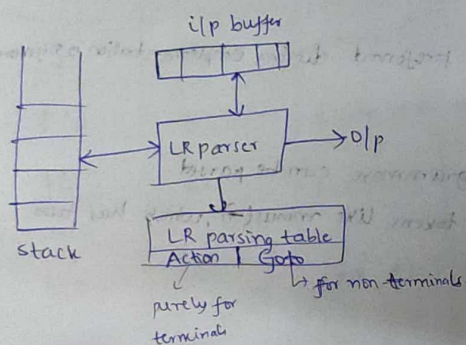 i/p buffer
LR parser
O/p
stack
LR parsing table
Action Goto
for non-terminals
purely for
terminals